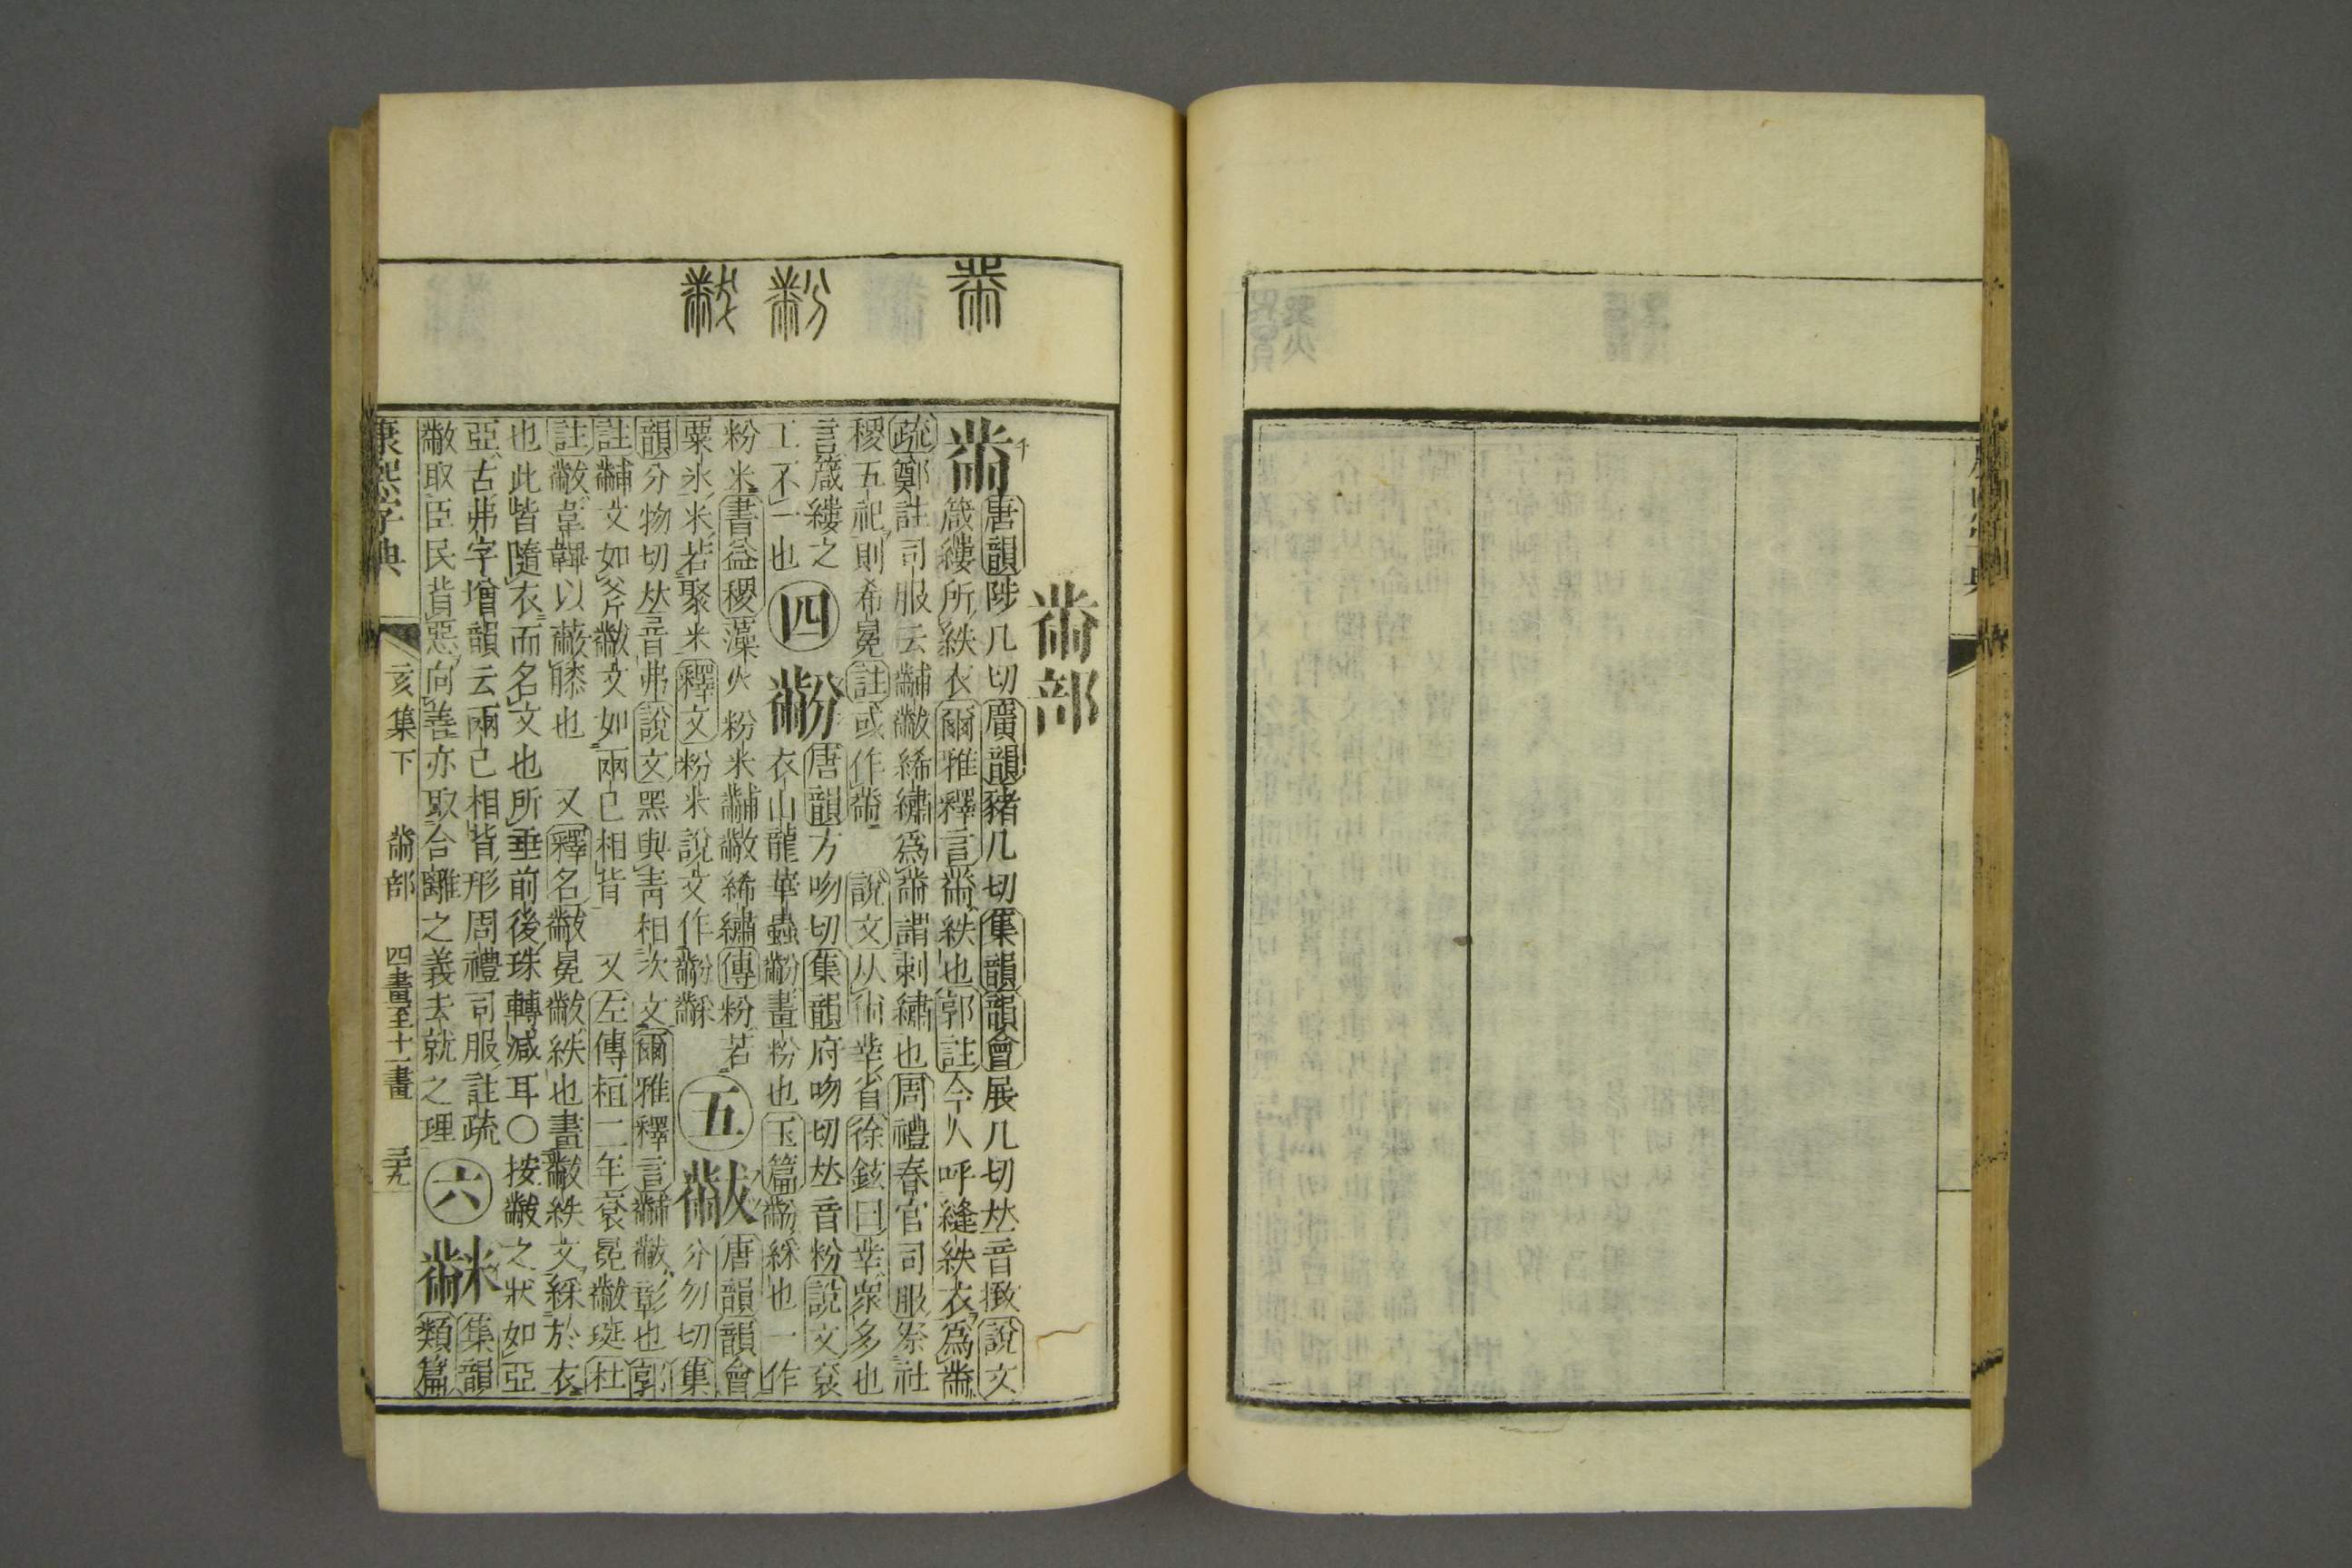 黹部
黹
唐韻陟几切廣韻豬几切集韻韻會展几切𠀤音𢾫說文
箴縷所紩衣爾雅釋言黹紩也郭註今人呼縫紩衣爲黹
疏鄭註司服云黼黻絺繡爲黹謂刺繡也周禮春官司服祭社
稷五祀則希冕註或作黹 說文从㡀丵省徐鉉曰丵衆多也
言箴縷之
工不一也
四
黺
唐韻方吻切集韻府吻切𠀤音粉說文袞
衣山龍華蟲黺畫粉也玉篇黺綵也一作
粉米書益稷藻火粉米黼黻絺繡傳粉若
粟冰米若聚米釋文粉米說文作黺䋛
五
黻
唐韻韻會
分勿切集
韻分物切𠀤音弗說文黑與靑相次文爾雅釋言黼黻彰也郭
註黼文如斧黻文如兩己相背 又左傳桓二年袞冕黻珽杜
註黻韋韠以蔽膝也 又釋名黻冕黻紩也畫黻紩文綵於衣
也此皆隨衣而名文也所垂前後珠轉減耳○按黻之狀如亞
亞古弗字增韻云兩己相背形周禮司服註疏
黻取臣民背惡向善亦取合離之義去就之理
六
䋛
集韻
類篇
康熙字典 亥集下 黹部 四畫至十一畫 三九